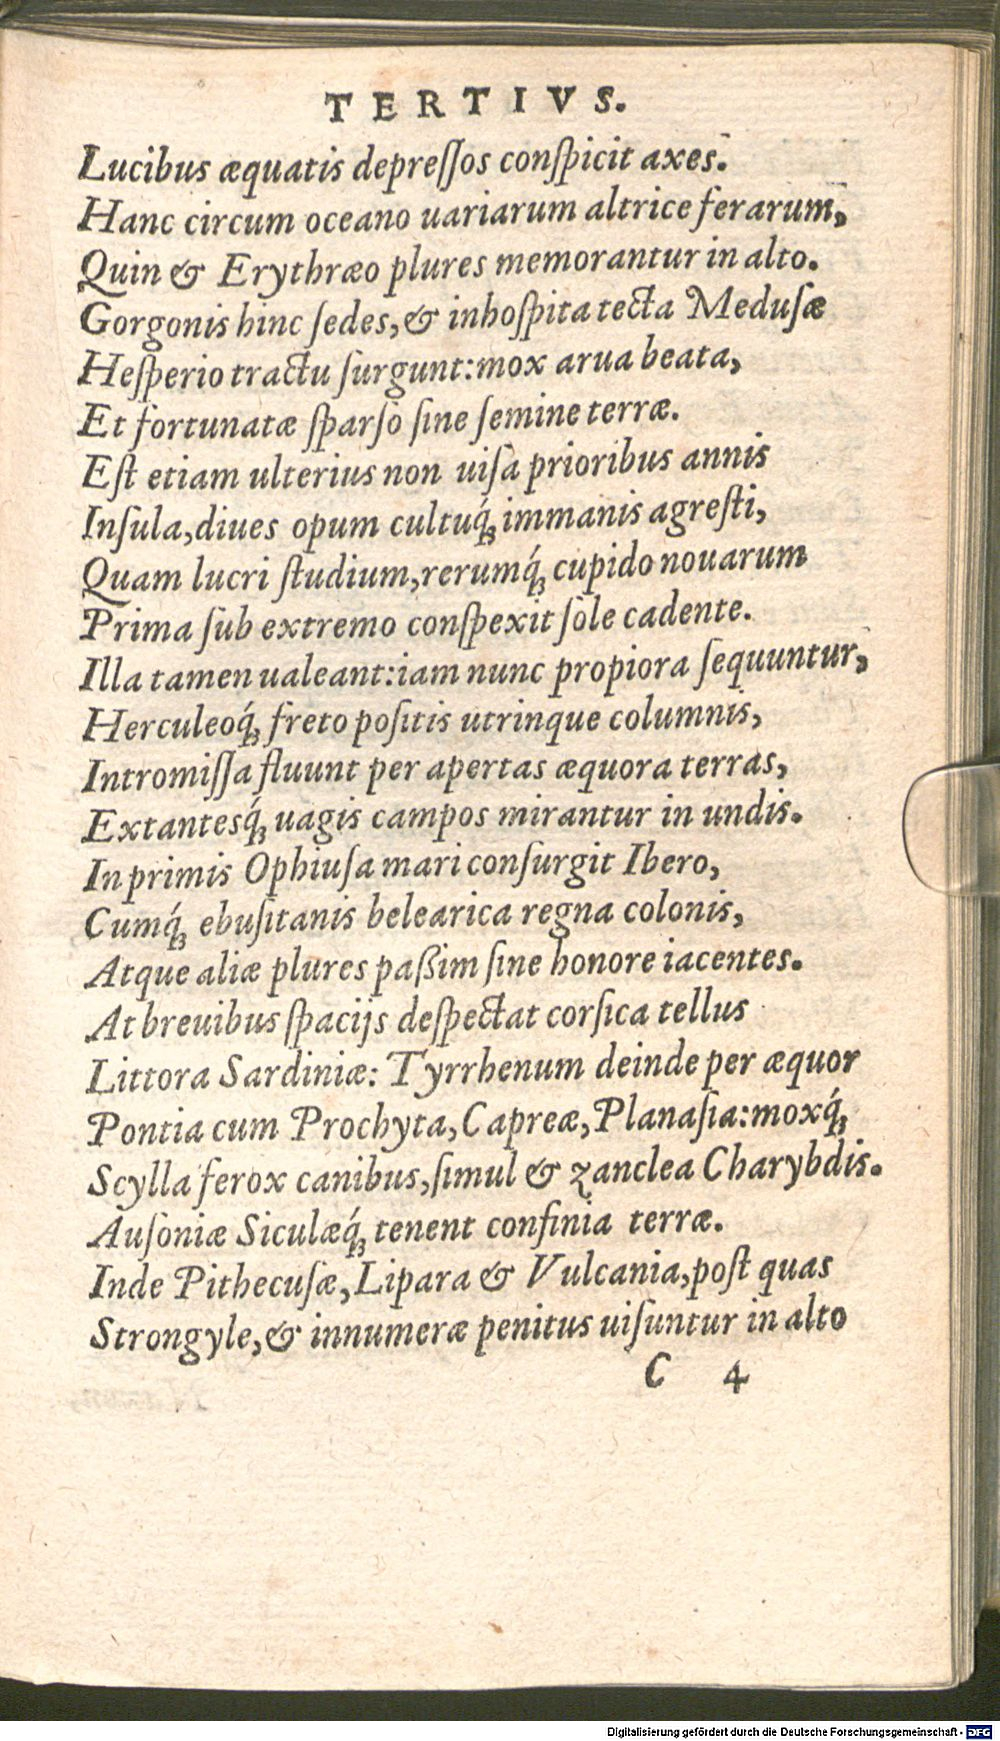 TERTIVS.
Lucibus æquatis depreſſos conſpicit axes.
Hanc circum oceano uariarum altrice ferarum,
Quin & Erythræo plures memorantur in alto.
Gorgonis hinc ſedes, & inhoſpita tecta Meduſæ
Heſperio tractu ſurgunt: mox arua beata,
Et fortunatæ ſparſo ſine ſemine terræ.
Eſt etiam ulterius non uiſa prioribus annis
Inſula, diues opum cultuq́; immanis agreſti,
Quam lucri ſtudium, rerumq́; cupido nouarum
Prima ſub extremo conſpexit ſole cadente.
Illa tamen ualeant: iam nunc propiora ſequuntur,
Herculeoq́; freto poſitis utrinque columnis,
Intromiſſa fluunt per apertas æquora terras,
Extantesq́; uagis campos mirantur in undis.
In primis Ophiuſa mari conſurgit Ibero,
Cumq́; ebuſitanis belearica regna colonis,
Atque aliæ plures paßim ſine honore iacentes.
At breuibus ſpacijs deſpectat corſica tellus
Littora Sardiniæ: Tyrrhenum deinde per æquor
Pontia cum Prochyta, Capreæ, Planaſia: moxq́;
Scylla ferox canibus, ſimul & zanclea Charybdis.
Auſoniæ Siculæq́; tenent confinia terræ.
Inde Pithecuſæ, Lipara & Vulcania, poſt quas
Strongyle, & innumeræ penitus uiſuntur in alto
C 4
Digitalisierung gefördert durch die Deutsche Forschungsgemeinschaft - DFG